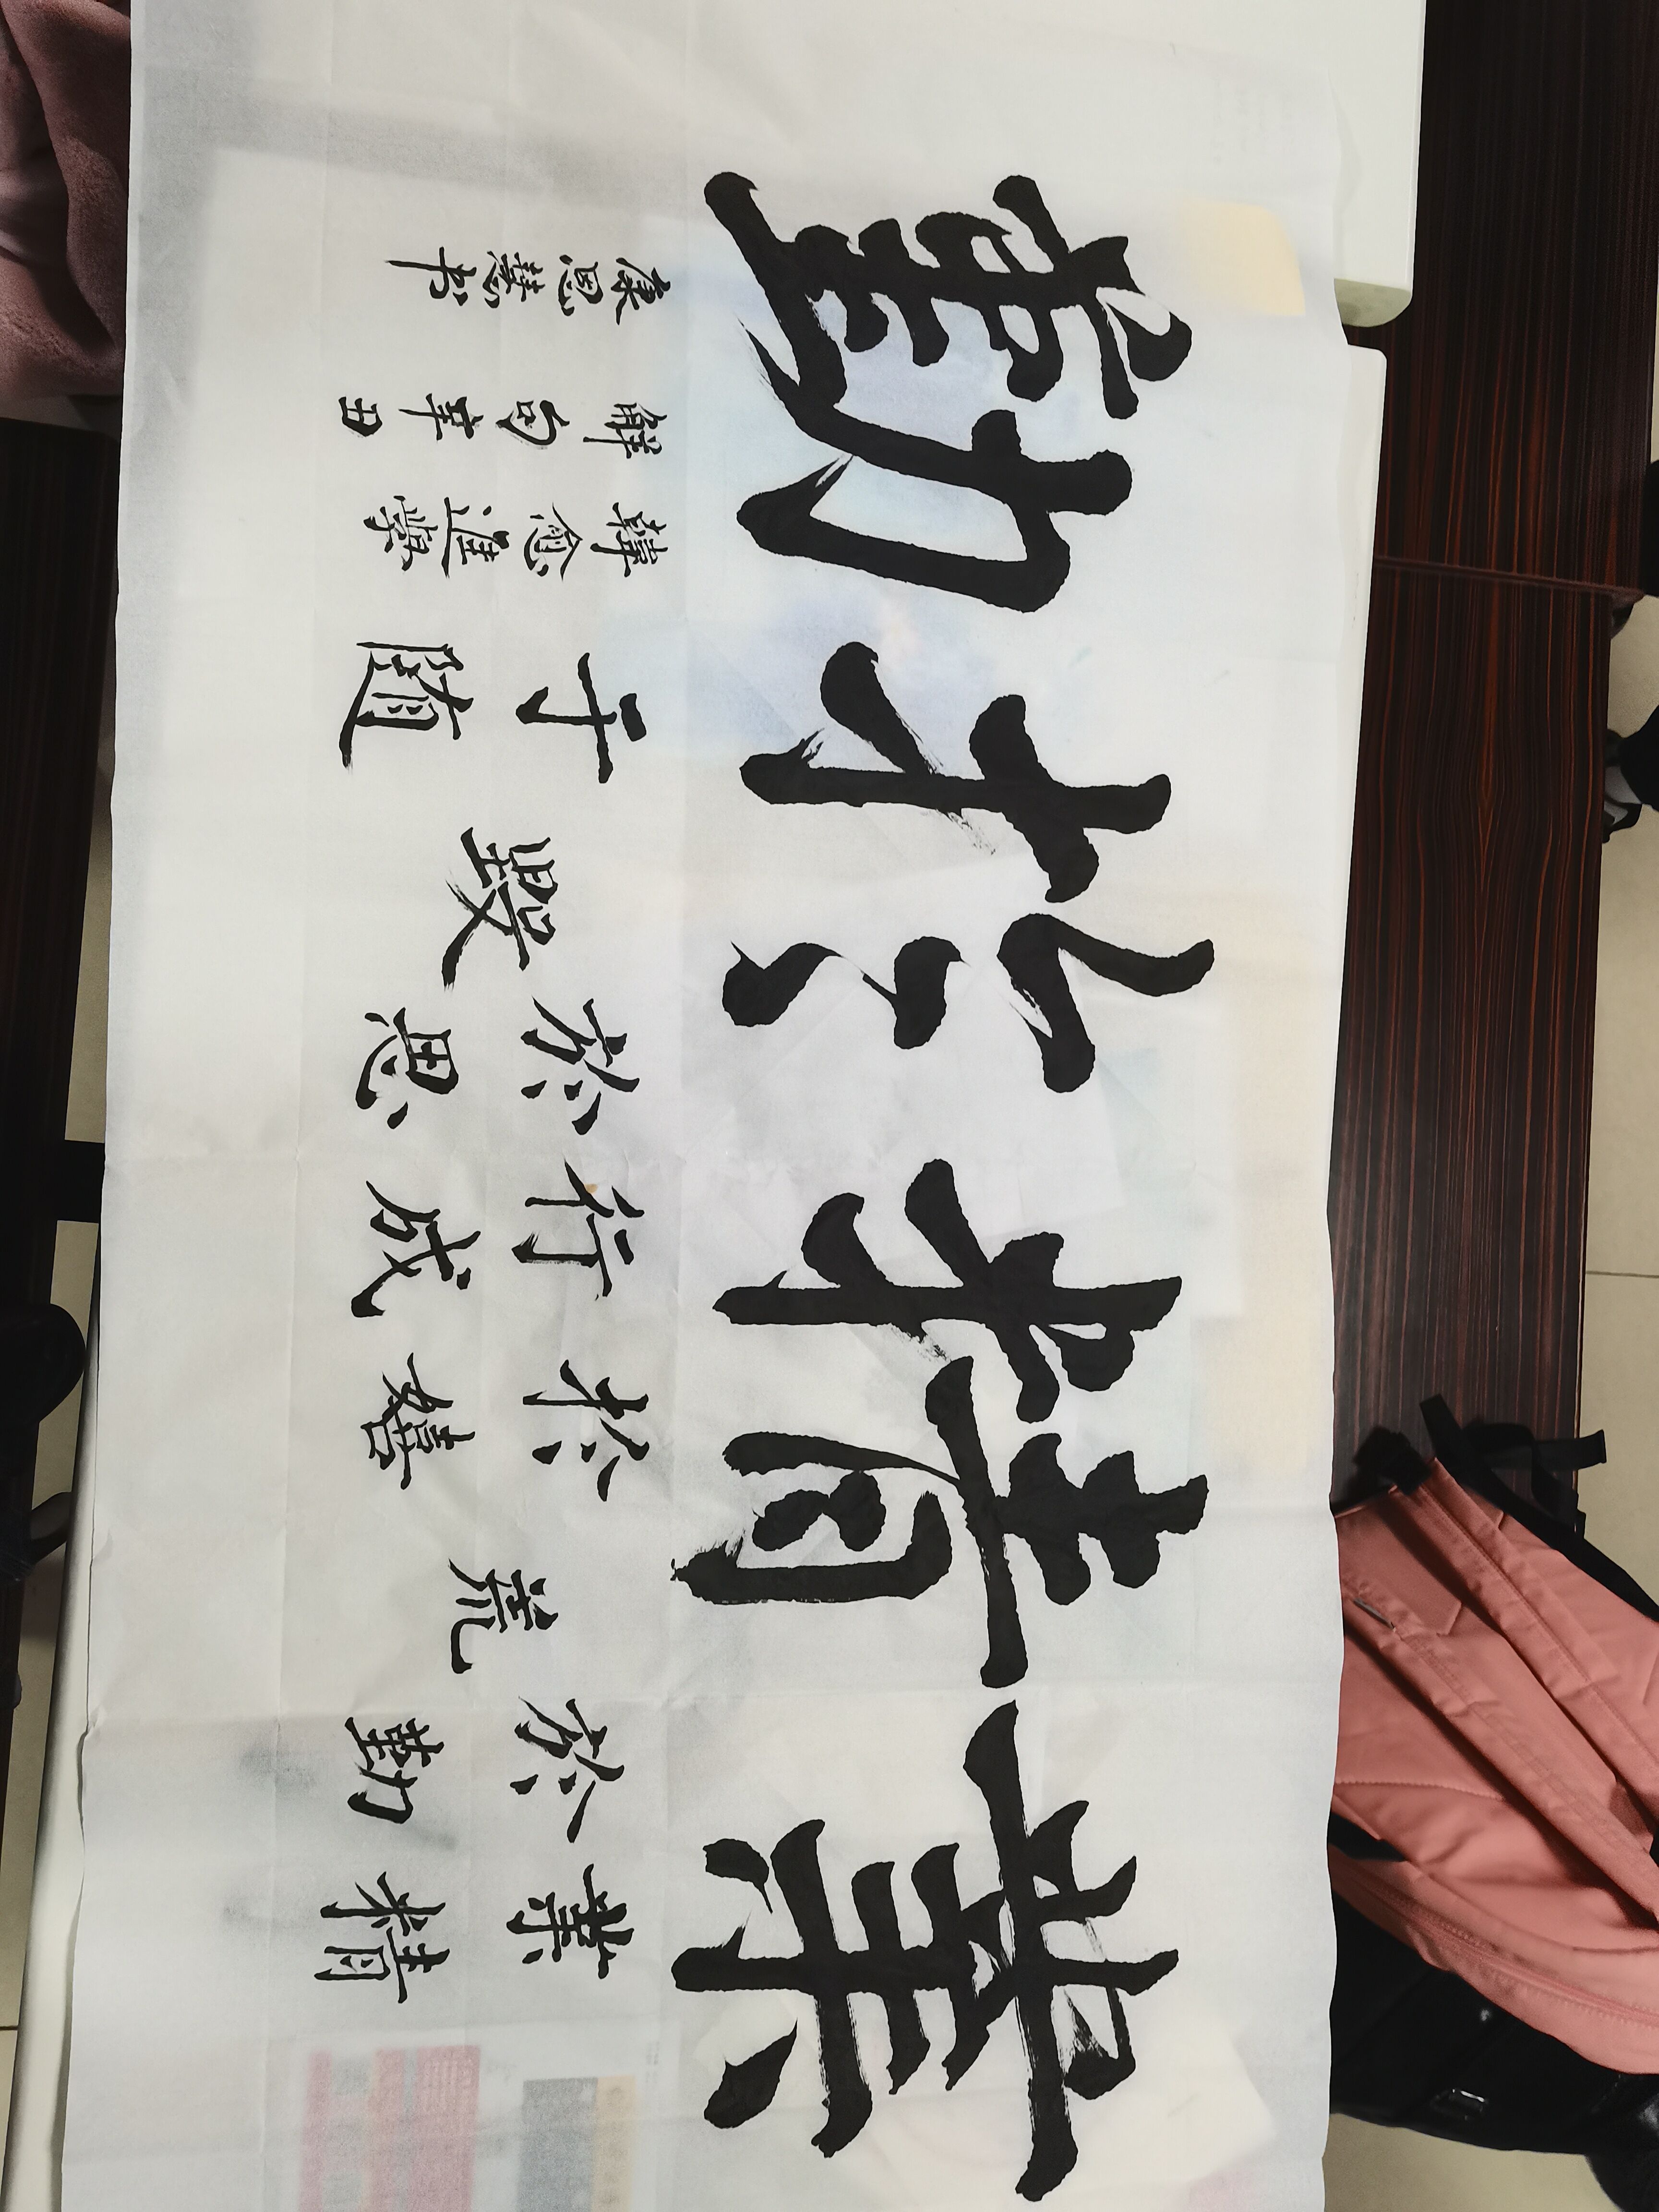 業精於勤
業精
於勤
荒
於嬉
行成
於思
毀
于随
韓愈進學
解句辛丑
康恩慧书